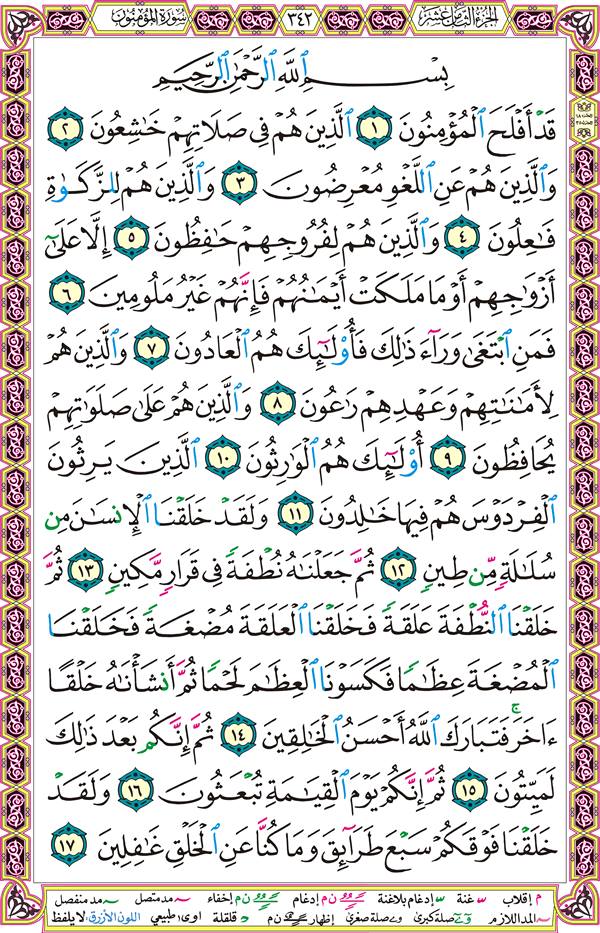 الجزء الثامن عشر ٣٤٢ سورة المؤمنون
بِسْمِ ٱللَّهِ ٱلرَّحْمَٰنِ ٱلرَّحِيمِ
قَدْ أَفْلَحَ ٱلْمُؤْمِنُونَ ١ ٱلَّذِينَ هُمْ فِى صَلَاتِهِمْ خَٰشِعُونَ ٢
وَٱلَّذِينَ هُمْ عَنِ ٱللَّغْوِ مُعْرِضُونَ ٣ وَٱلَّذِينَ هُمْ لِلزَّكَوٰةِ
فَٰعِلُونَ ٤ وَٱلَّذِينَ هُمْ لِفُرُوجِهِمْ حَٰفِظُونَ ٥ إِلَّا عَلَىٰٓ
أَزْوَٰجِهِمْ أَوْ مَا مَلَكَتْ أَيْمَٰنُهُمْ فَإِنَّهُمْ غَيْرُ مَلُومِينَ ٦
فَمَنِ ٱبْتَغَىٰ وَرَآءَ ذَٰلِكَ فَأُو۟لَٰٓئِكَ هُمُ ٱلْعَادُونَ ٧ وَٱلَّذِينَ هُمْ
لِأَمَٰنَٰتِهِمْ وَعَهْدِهِمْ رَٰعُونَ ٨ وَٱلَّذِينَ هُمْ عَلَىٰ صَلَوَٰتِهِمْ
يُحَافِظُونَ ٩ أُو۟لَٰٓئِكَ هُمُ ٱلْوَٰرِثُونَ ١٠ ٱلَّذِينَ يَرِثُونَ
ٱلْفِرْدَوْسَ هُمْ فِيهَا خَٰلِدُونَ ١١ وَلَقَدْ خَلَقْنَا ٱلْإِنسَٰنَ مِن
سُلَٰلَةٍ مِّن طِينٍ ١٢ ثُمَّ جَعَلْنَٰهُ نُطْفَةً فِى قَرَارٍ مَّكِينٍ ١٣ ثُمَّ
خَلَقْنَا ٱلنُّطْفَةَ عَلَقَةً فَخَلَقْنَا ٱلْعَلَقَةَ مُضْغَةً فَخَلَقْنَا
ٱلْمُضْغَةَ عِظَٰمًا فَكَسَوْنَا ٱلْعِظَٰمَ لَحْمًا ثُمَّ أَنشَأْنَٰهُ خَلْقًا
ءَاخَرَ ۚ فَتَبَارَكَ ٱللَّهُ أَحْسَنُ ٱلْخَٰلِقِينَ ١٤ ثُمَّ إِنَّكُم بَعْدَ ذَٰلِكَ
لَمَيِّتُونَ ١٥ ثُمَّ إِنَّكُمْ يَوْمَ ٱلْقِيَٰمَةِ تُبْعَثُونَ ١٦ وَلَقَدْ
خَلَقْنَا فَوْقَكُمْ سَبْعَ طَرَآئِقَ وَمَا كُنَّا عَنِ ٱلْخَلْقِ غَٰفِلِينَ ١٧
م إقلاب غنة إدغام بلاغنة ن م إدغام ن م إخفاء مد متصل مد منفصل
المد اللازم صلة كبرى صلة صغرى إظهار ن م قلقلة اوى طبيعي اللون الأزرق: لا يلفظ